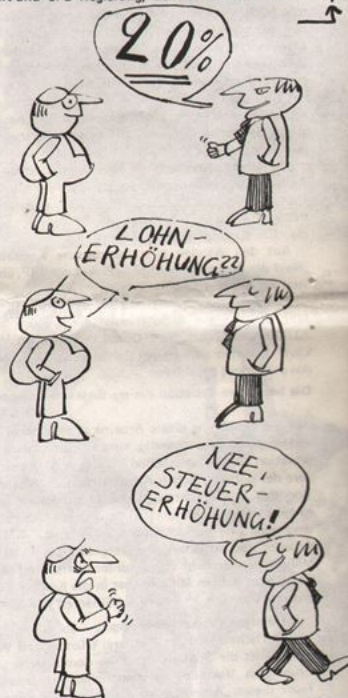 20%
LOHN-
ERHÖHUNG??
NEE,
STEUER-
ERHÖHUNG!